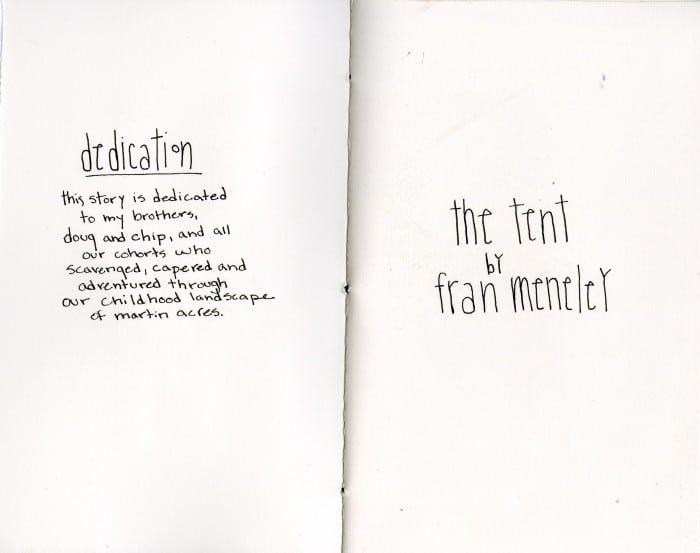 dedication
this story is dedicated
to my brothers,
doug and chip, and all
our cohorts who
scavenged, capered and
adventured through
our childhood landscape
of martin acres.
the tent
by
fran meneley